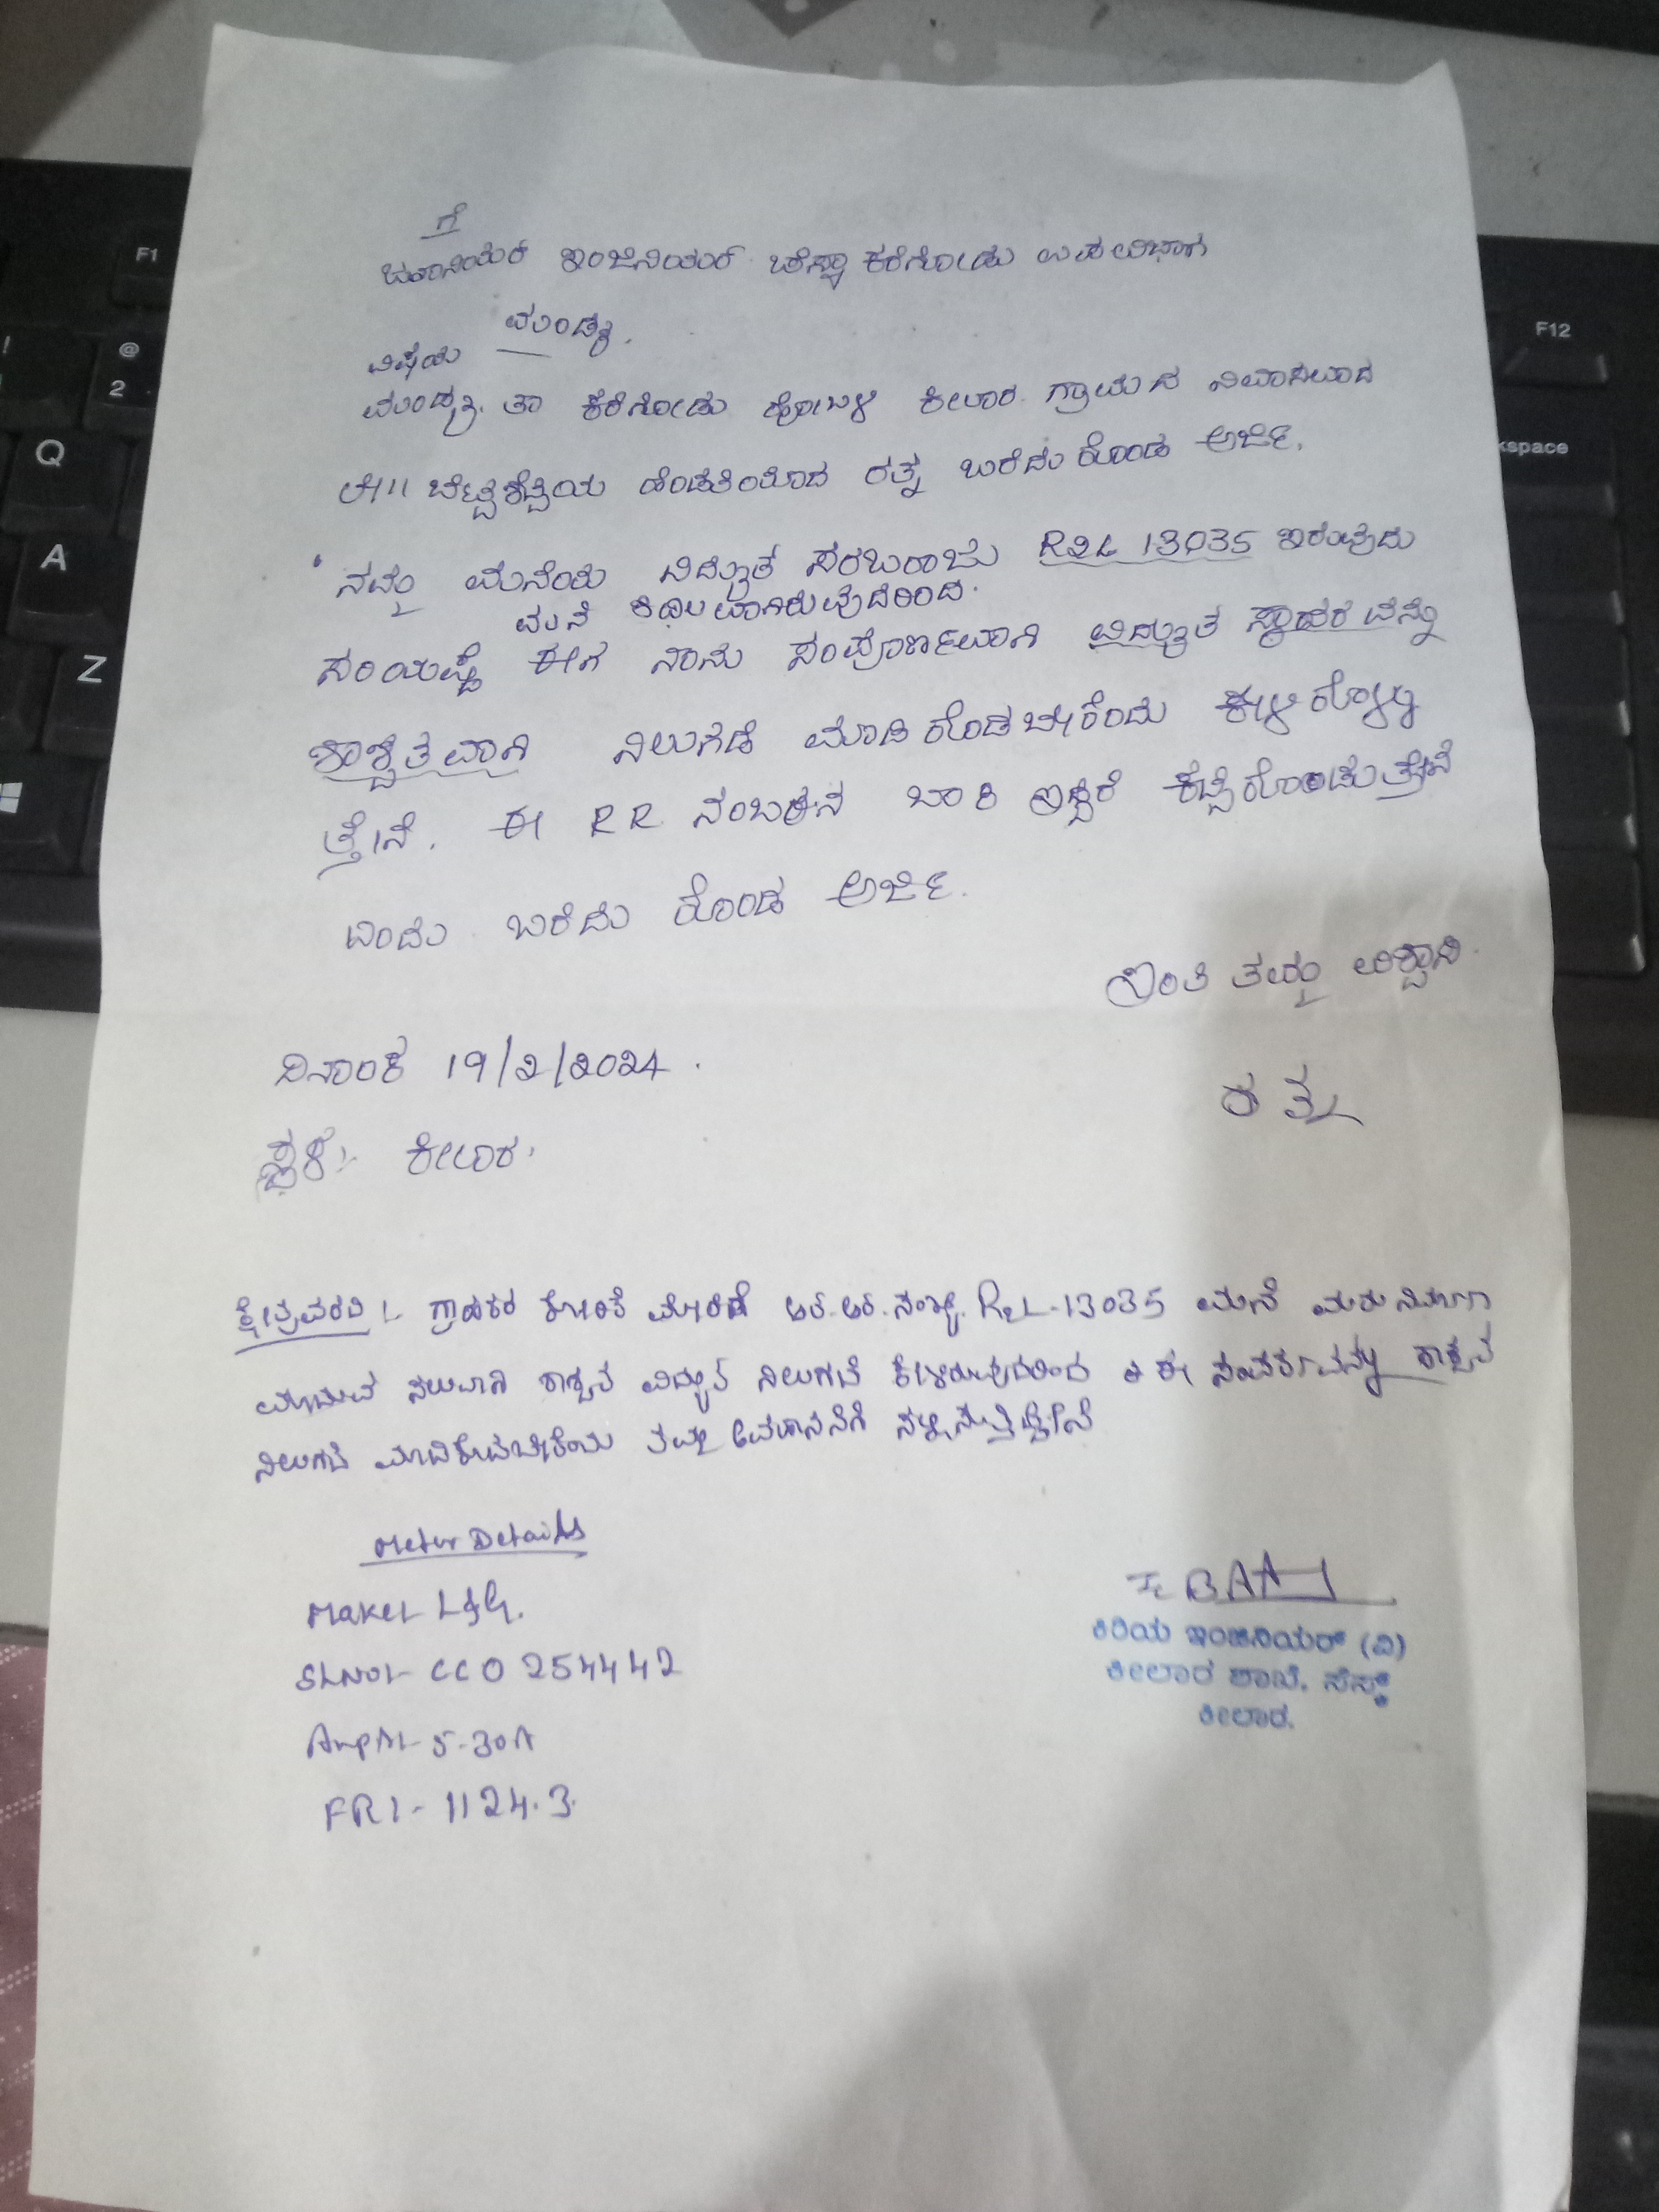 ಗೆ
ಇಂಜಿನಿಯರ್ ಕೆರೆಗೋಡು ಉಪವಿಭಾಗ
ಮಂಡ್ಯ.
ವಿಷಯ
ಮಂಡ್ಯ ತಾ ಕೆರೆಗೋಡು ಹೋಬಳಿ ಕೀಲಾರ ಗ್ರಾಮದ ನಿವಾಸಿಯಾದ
ಲೇ॥ ಬೆಟ್ಟಶೆಟ್ಟಿಯ ಹೆಂಡತಿಯಾದ ರತ್ನ ಬರೆದುಕೊಂಡ ಅರ್ಜಿ.
ನಮ್ಮ ಮನೆಯ ವಿದ್ಯುತ ಸರಬರಾಜು R2L 13035 ಇರುವುದು
ಮನೆ ಶಿಥಿಲವಾಗಿರುವುದರಿಂದ.
ಸರಿಯಷ್ಟೆ ಈಗ ನಾನು ಸಂಪೂರ್ಣವಾಗಿ ವಿದ್ಯುತ ಸ್ಥಾವರವನ್ನು
ಶಾಶ್ವತವಾಗಿ ನಿಲುಗಡೆ ಮಾಡಿಕೊಡಬೇಕೆಂದು ಕೇಳಿಕೊಳ್ಳು
ತ್ತೇನೆ. ಈ RR ನಂಬರಿನ ಬಾಕಿ ಇದ್ದರೆ ಕಟ್ಟಿಕೊಂಡುತ್ತೇನೆ
ಎಂದು ಬರೆದು ಕೊಂಡ ಅರ್ಜಿ.
ಇಂತಿ ತಮ್ಮ ವಿಶ್ವಾಸಿ.
ದಿನಾಂಕ 19/2/2024.
ರತ್ನ
ಸ್ಥಳ:- ಕೀಲಾರ.
ಕ್ಷೇತ್ರವರದಿ:- ಗ್ರಾಹಕರ ಕೋರಿಕೆ ಮೇರೆಗೆ ಆರ್.ಆರ್.ಸಂಖ್ಯೆ. R2L-13035 ಮನೆ ಮರು ನಿರ್ಮಾಣ
ಮಾಡುವ ಸಲುವಾಗಿ ಶಾಶ್ವತ ವಿದ್ಯುತ್ ನಿಲುಗಡೆ ಕೇಳಿರುವುದರಿಂದ ಈ ಸಂಪರ್ಕವನ್ನು ಶಾಶ್ವತ
ನಿಲುಗಡೆ ಮಾಡಿಕೊಡಬೇಕೆಂದು ತಮ್ಮ ಅವಗಾಹನೆಗೆ ಸಲ್ಲಿಸುತ್ತಿದ್ದೇನೆ
Meter Details
Make:- L&G.
SLNO:- CCO 254442
Amps:- 5-30A
FR:- 1124.3.
ಕಿರಿಯ ಇಂಜಿನಿಯರ್ (ವಿ)
ಕೀಲಾರ ಶಾಖೆ, ಸೆಸ್ಕ್
ಕೀಲಾರ.